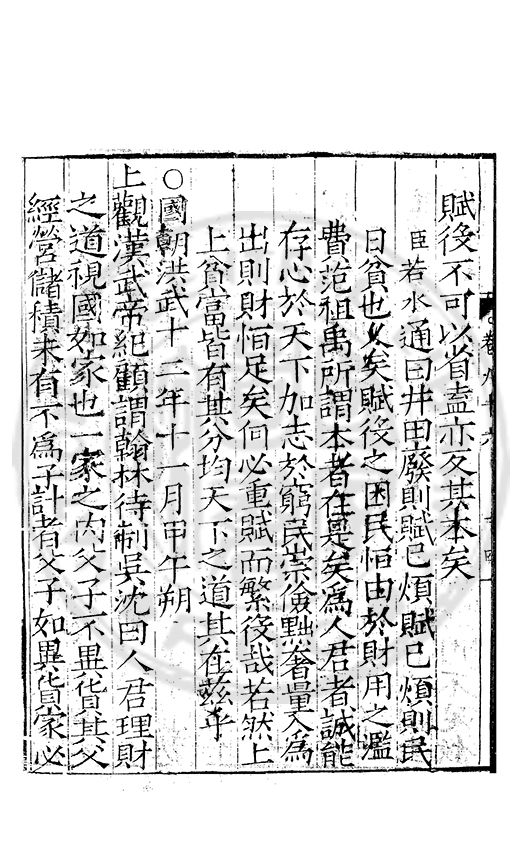 賦役不可以省盍亦反其本矣
臣若水通曰井田廢則賦已煩賦已煩則民
日貧也久矣賦役之困民恒由於財用之濫
費范祖禹所謂本者在是矣為人君者誠能
存心於天下加志於窮民崇儉黜奢量入為
出則財恒足矣何必重賦而繁役哉若然上
上貧富皆有其分均天下之道其在兹乎
○國朝洪武十二年十一月甲午朔
上觀漢武帝紀顧謂翰林待制吳沈曰人君理財
之道視國如家也一家之内父子不異貨其父
經營儲積未有不為子計者父子如異貨家必